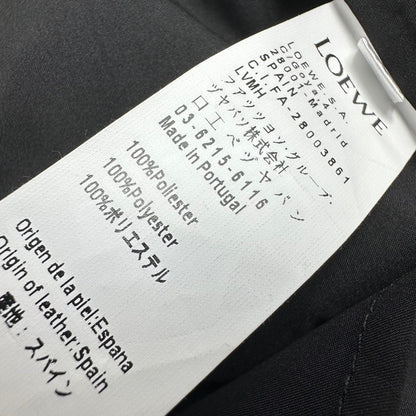 LOEWE
LOEWE.S.A.
C/Goya4
28001-Madrid
SPAIN
C.I.F A-28003861
LVMH
ファッツョン.グループ.
ヅャパツ株式会社
ロエベヅャパン
03-6215-6116
Made in Portugal
100%Poliester
100%Polyester
100%ポリエステル
Origen de la plei:Espana
Origin of leather:Spain
産地：スペイン